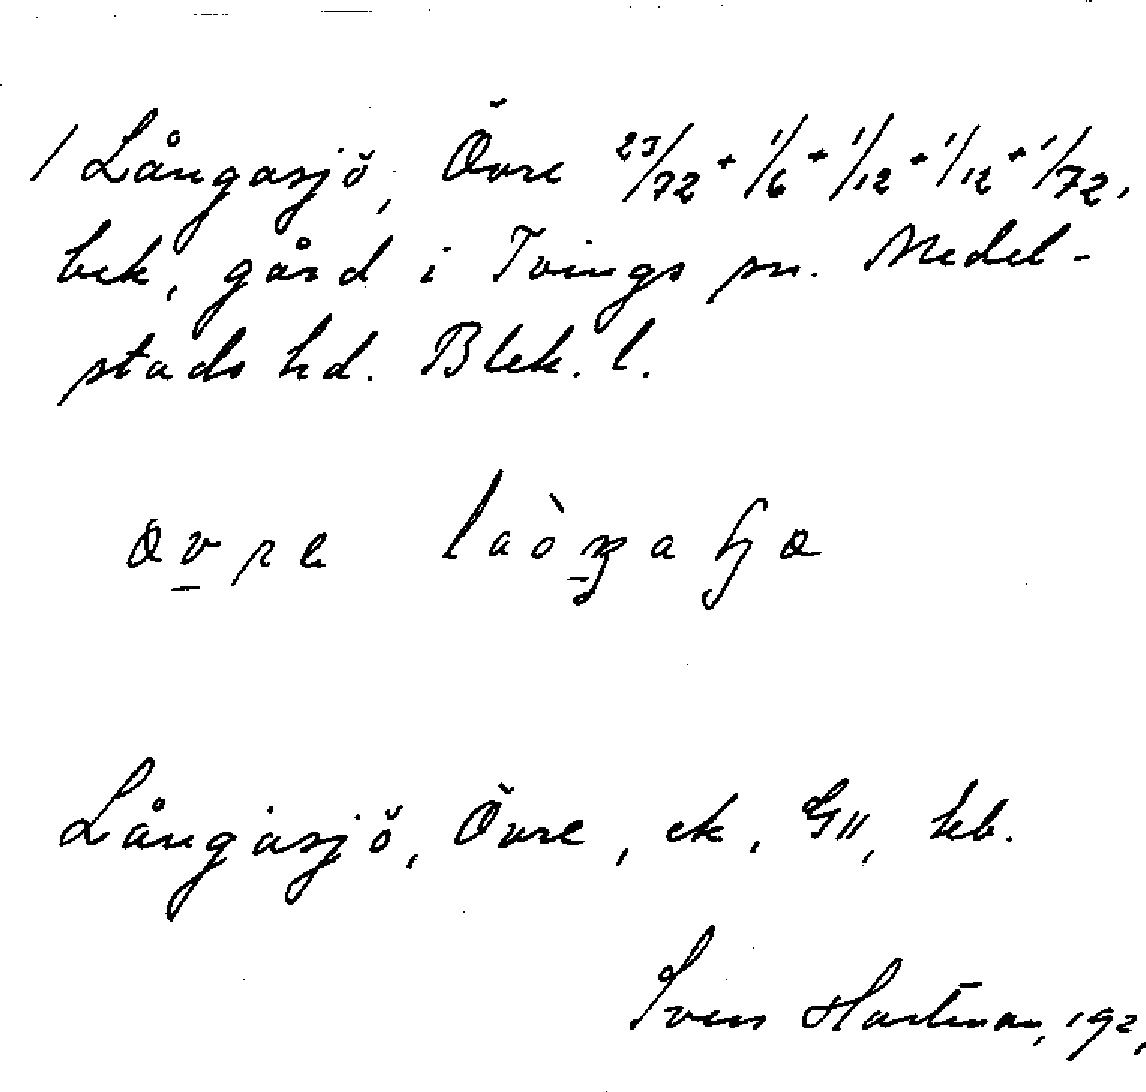 1 Långasjö, Övre 23/72 + 1/6 + 1/12 + 1/12 + 1/72,
bek, gård i Tvings sn. Medel-
stads hd. Blek. l.
Långasjö, Övre, ek, GII, kb.
Sven Hartman, 192